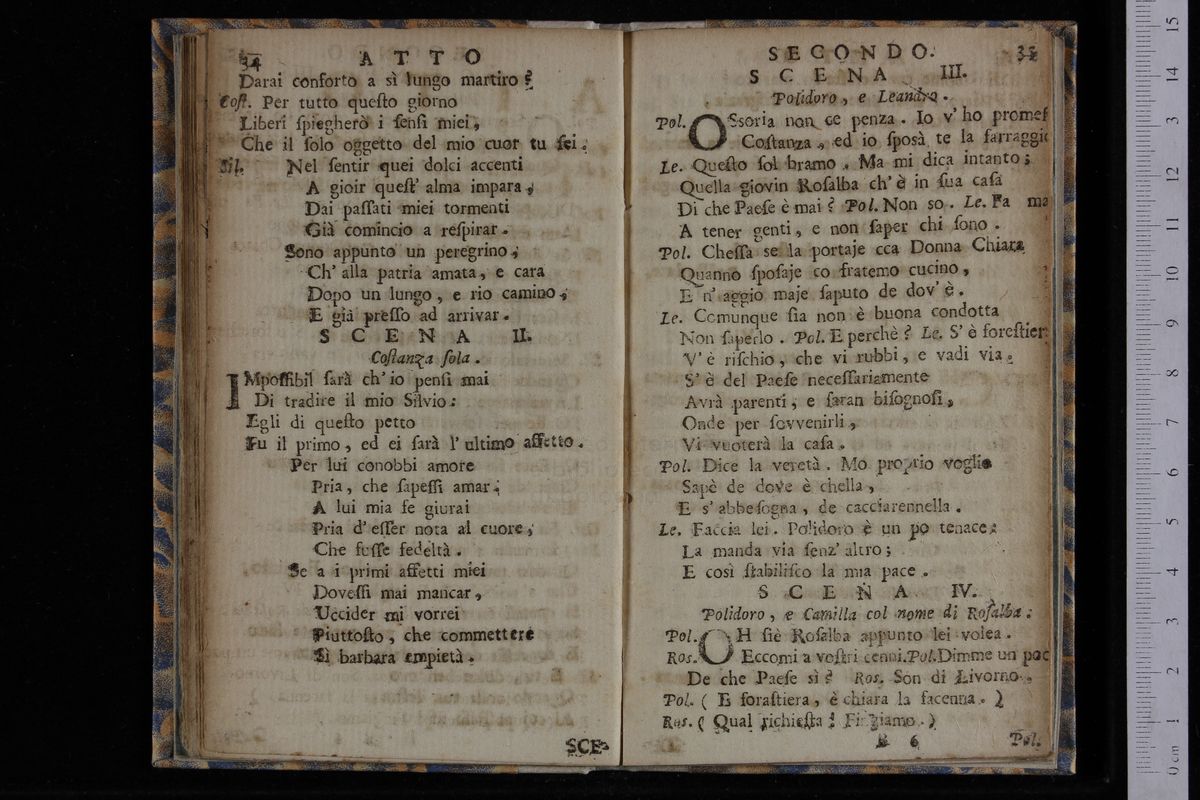 34 ATTO
Darai conforto a sì lungo martiro?
Cost. Per tutto queſto giorno
Liberi ſpiegherò i ſenſi miei,
Che il ſolo oggetto del mio cuor tu ſei.
Sil. Nel ſentir quei dolci accenti
A gioir queſt' alma impara;
Dai paſſati miei tormenti
Già comincio a reſpirar.
Sono appunto un peregrino,
Ch' alla patria amata, e cara
Dopo un lungo, e rio camino,
E già preſſo ad arrivar.
SCENA II.
Coſtanza ſola.
IMpoſſibil ſarà ch' io penſi mai
Di tradire il mio Silvio:
Egli di queſto petto
Fu il primo, ed ei ſarà l' ultimo affetto.
Per lui conobbi amore
Pria, che ſapeſſi amar;
A lui mia fe giurai
Pria d' eſſer nota al cuore,
Che fuſſe fedeltà.
Se a i primi affetti miei
Doveſſi mai mancar,
Uccider mi vorrei
Piuttoſto, che commettere
Sì barbara empietà.
SCE-
SECONDO. 35
SCENA III.
Polidoro, e Leandro.
Pol. OSſoria non ce penza. Io v' ho promeſ
Coſtanza, ed io ſposà te la farraggio
Le. Queſto ſol bramo. Ma mi dica intanto;
Quella giovin Roſalba ch' è in ſua caſa
Di che Paeſe è mai? Pol. Non so. Le. Fa ma
A tener genti, e non ſaper chi ſono.
Pol. Cheſſa se la portaje cca Donna Chiara
Quanno ſpoſaje co fratemo cucino,
E n' aggio maje ſaputo de dov' è.
Le. Comunque ſia non è buona condotta
Non ſaperlo. Pol. E perchè? Le. S' è foreſtier
V' è riſchio, che vi rubbi, e vadi via.
S' è del Paeſe neceſſariamente
Avrà parenti, e ſaran biſognoſi,
Onde per ſovvenirli,
Vi vuoterà la caſa.
Pol. Dice la veretà. Mo proprio voglio
Sapè de dove è chella,
E s' abbeſogna, de cacciarennella.
Le. Faccia lei. Polidoro è un po tenace:
La manda via ſenz' altro;
E così ſtabiliſco la mia pace.
SCENA IV.
Polidoro, e Camilla col nome di Roſalba.
Pol. OH ſiè Roſalba appunto lei volea.
Ros. Eccomi a voſtri cenni. Pol. Dimme un poc
De che Paeſe sì? Ros. Son di Livorno.
Pol. (E foraſtiera, è chiara la facenna.)
Ros. (Qual richieſta! Fingiamo.)
B 6 Pol.